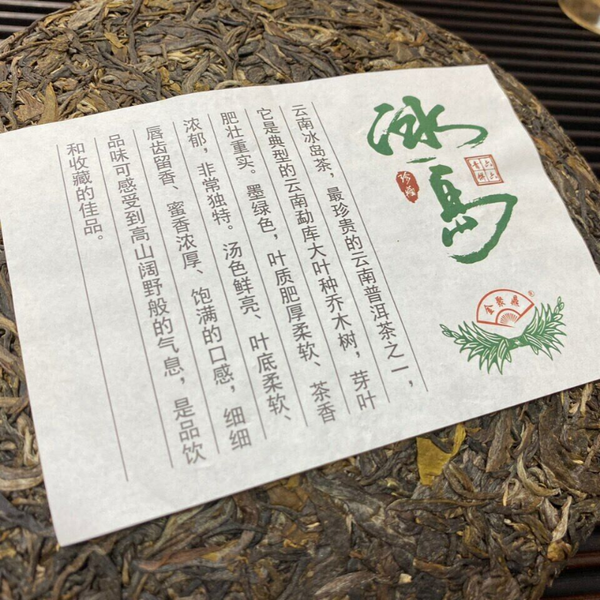 冰岛
珍藏
云南冰岛茶，最珍贵的云南普洱茶之一，
它是典型的云南勐库大叶种乔木树，芽叶
肥壮重实。墨绿色，叶质肥厚柔软、茶香
浓郁，非常独特。汤色鲜亮、叶底柔软、
唇齿留香、蜜香浓厚、饱满的口感，细细
品味可感受到高山阔野般的气息，是品饮
和收藏的佳品。